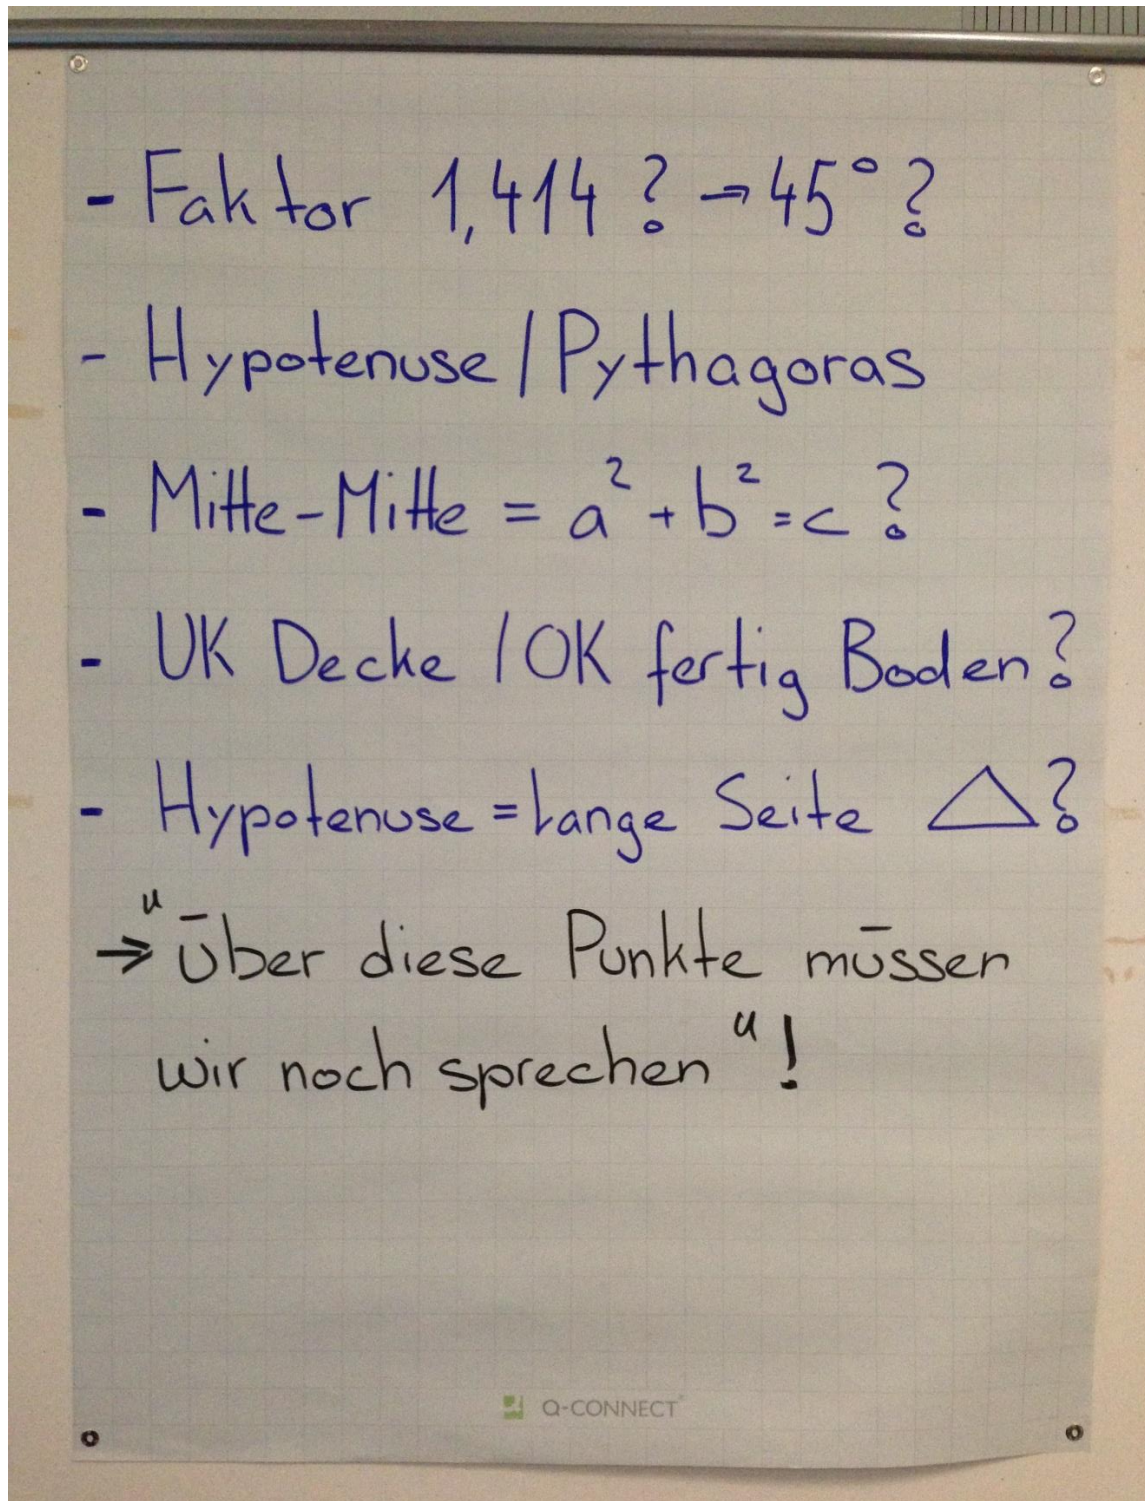 - Faktor 1,414 ? → 45° ?
- Hypotenuse / Pythagoras
- Mitte-Mitte = a² + b² = c ?
- UK Decke / OK fertig Boden ?
- Hypotenuse = Lange Seite △ ?
→ "Über diese Punkte müssen
wir noch sprechen" !
Q-CONNECT